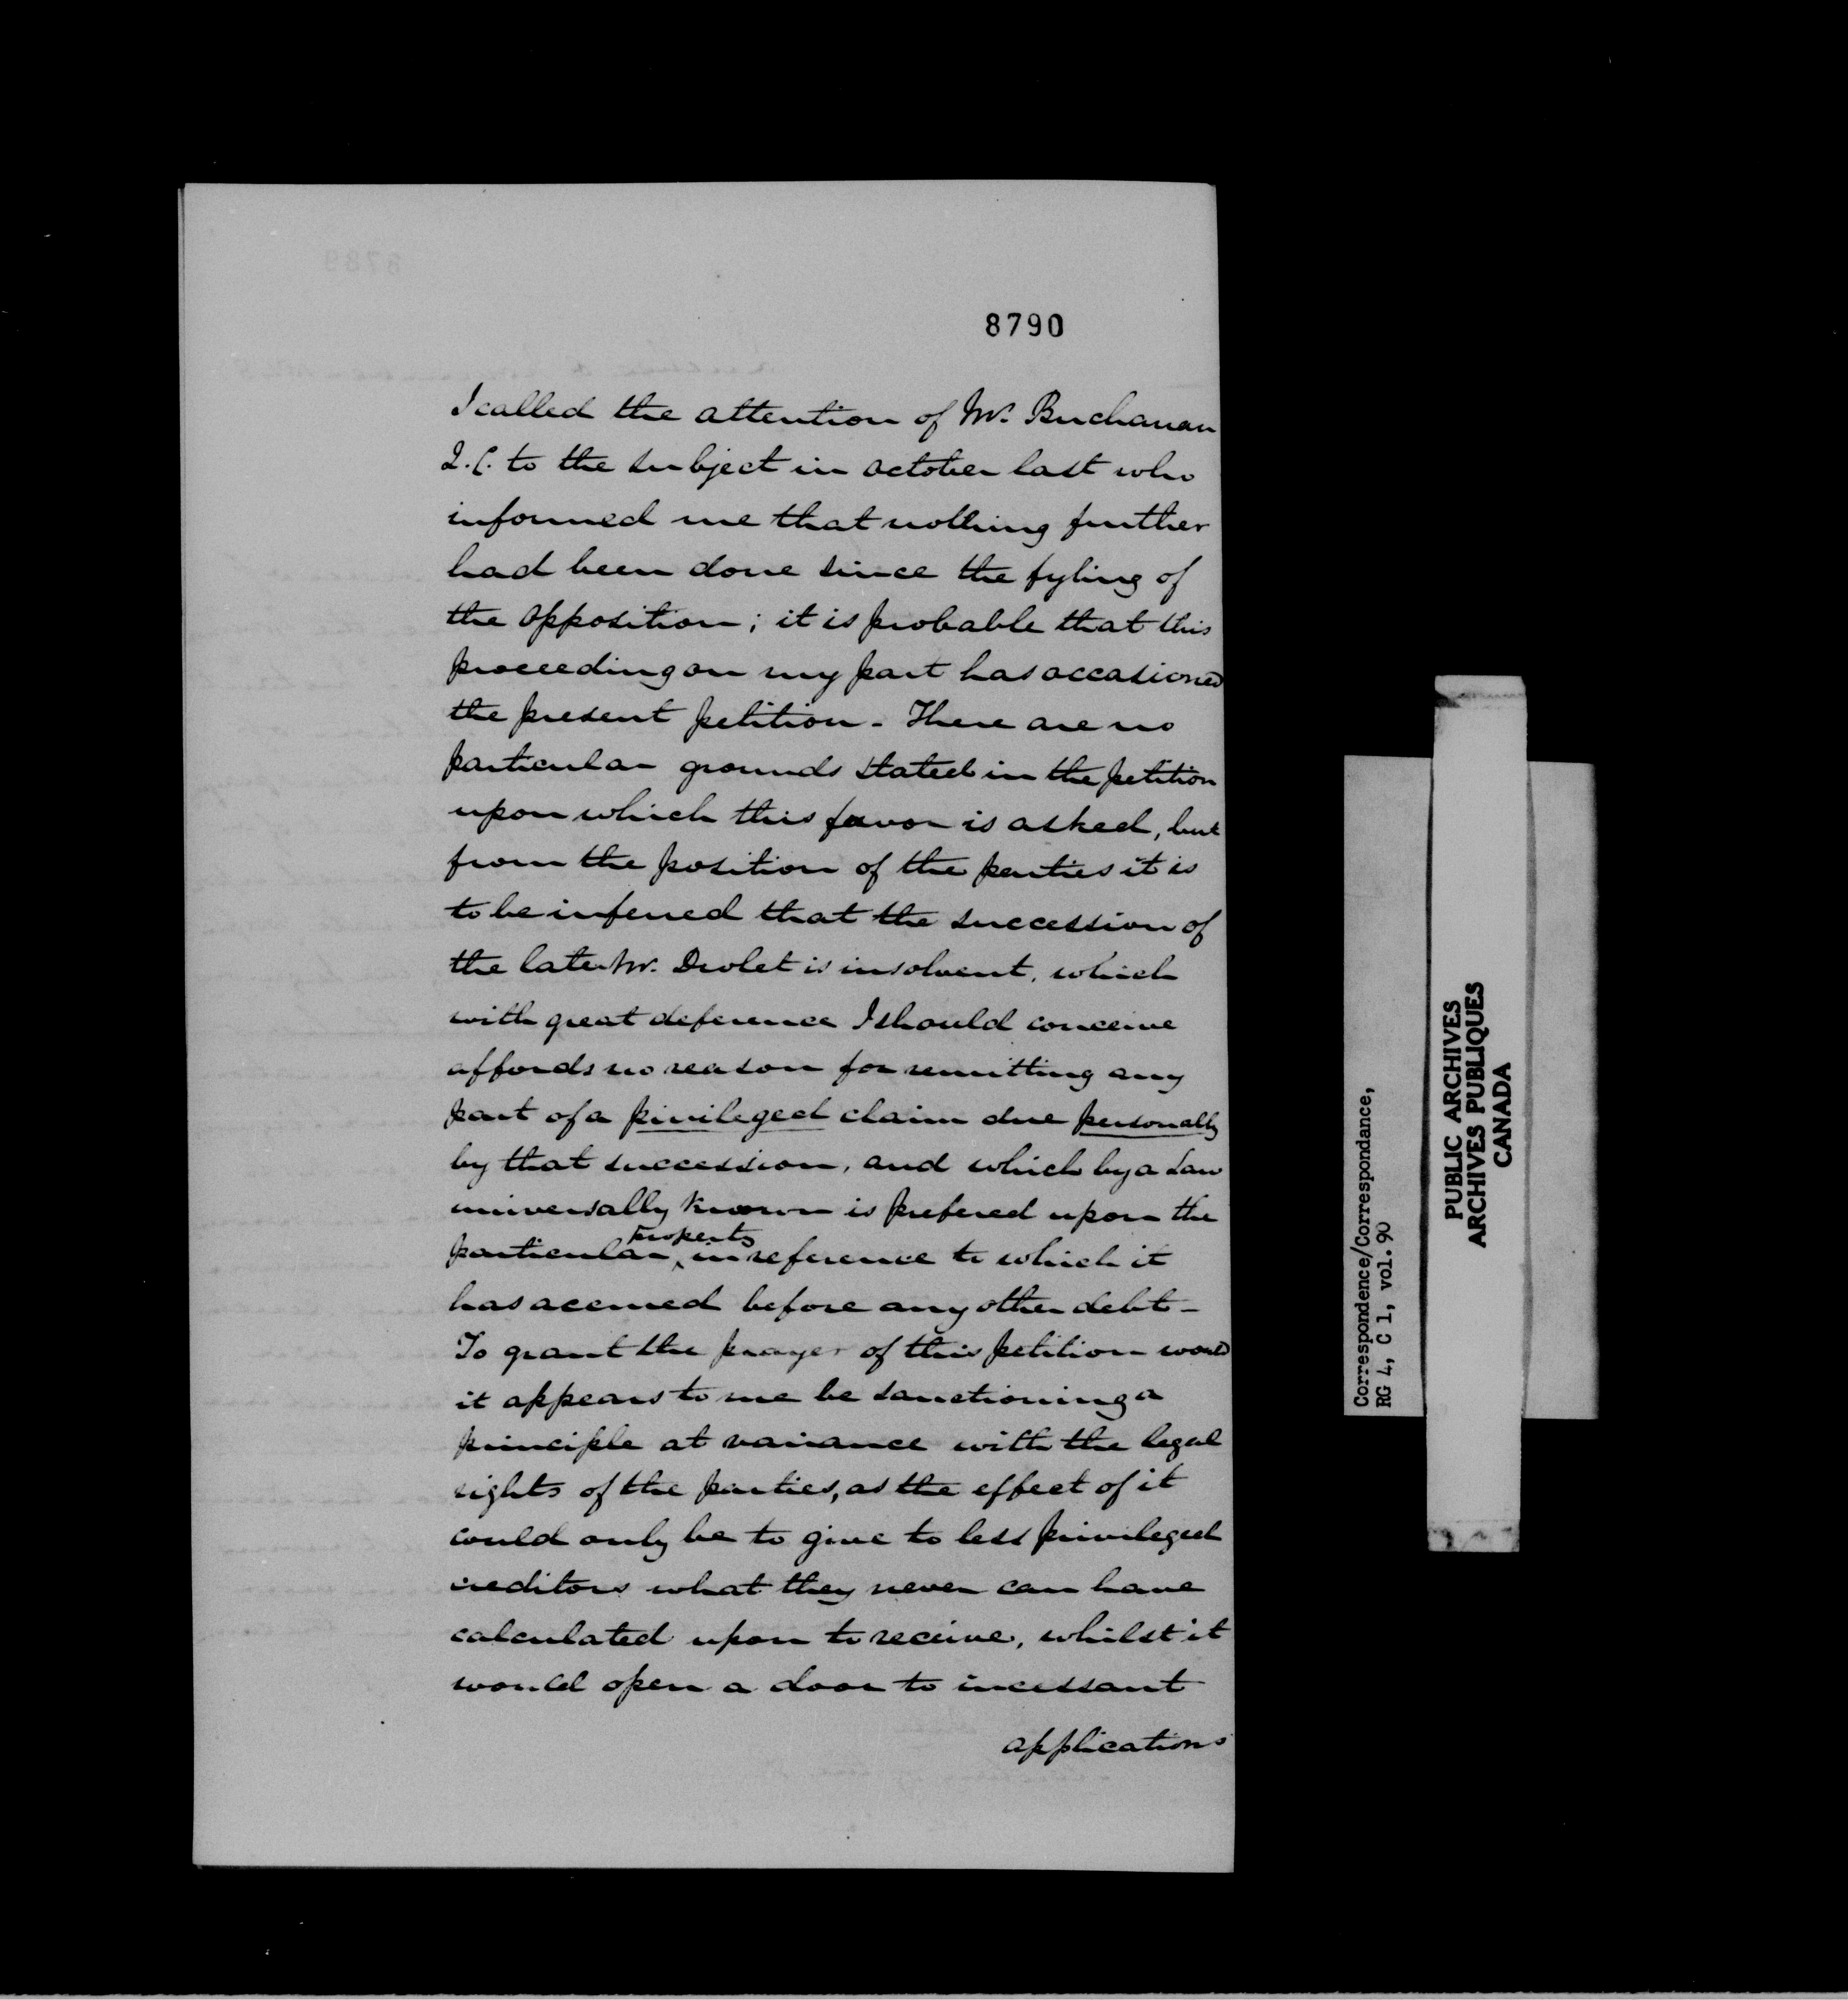 8790
I called the attention of Mr. Buchanan
Q.C. to the subject in october last who
informed me that nothing further
had been done since the fyling of
the opposition; it is probable that this
proceeding on my part has occasioned
the present petition - There are no
particular grounds stated in the petition
upon which this favor is asked, but
from the position of the parties it is
to be inferred that the succession of
the late Mr. Drolet is insolvent, which
with great deference I should conceive
affords no reason for remitting any
part of a privileged claim due personally
by that succession, and which by a Law
universally known is prefered upon the
property
particular ‸ in reference to which it
has accrued before any other debt -
To grant the prayer of this petition would
it appears to me be sanctioning a
principle at variance with the legal
rights of the parties, as the effect of it
could only be to give to less privileged
creditors what they never can have
calculated upon to receive, whilst it
would open a door to incessant
applications
Correspondence/Correspondance,
RG 4, C 1, vol. 90
PUBLIC ARCHIVES
ARCHIVES PUBLIQUES
CANADA